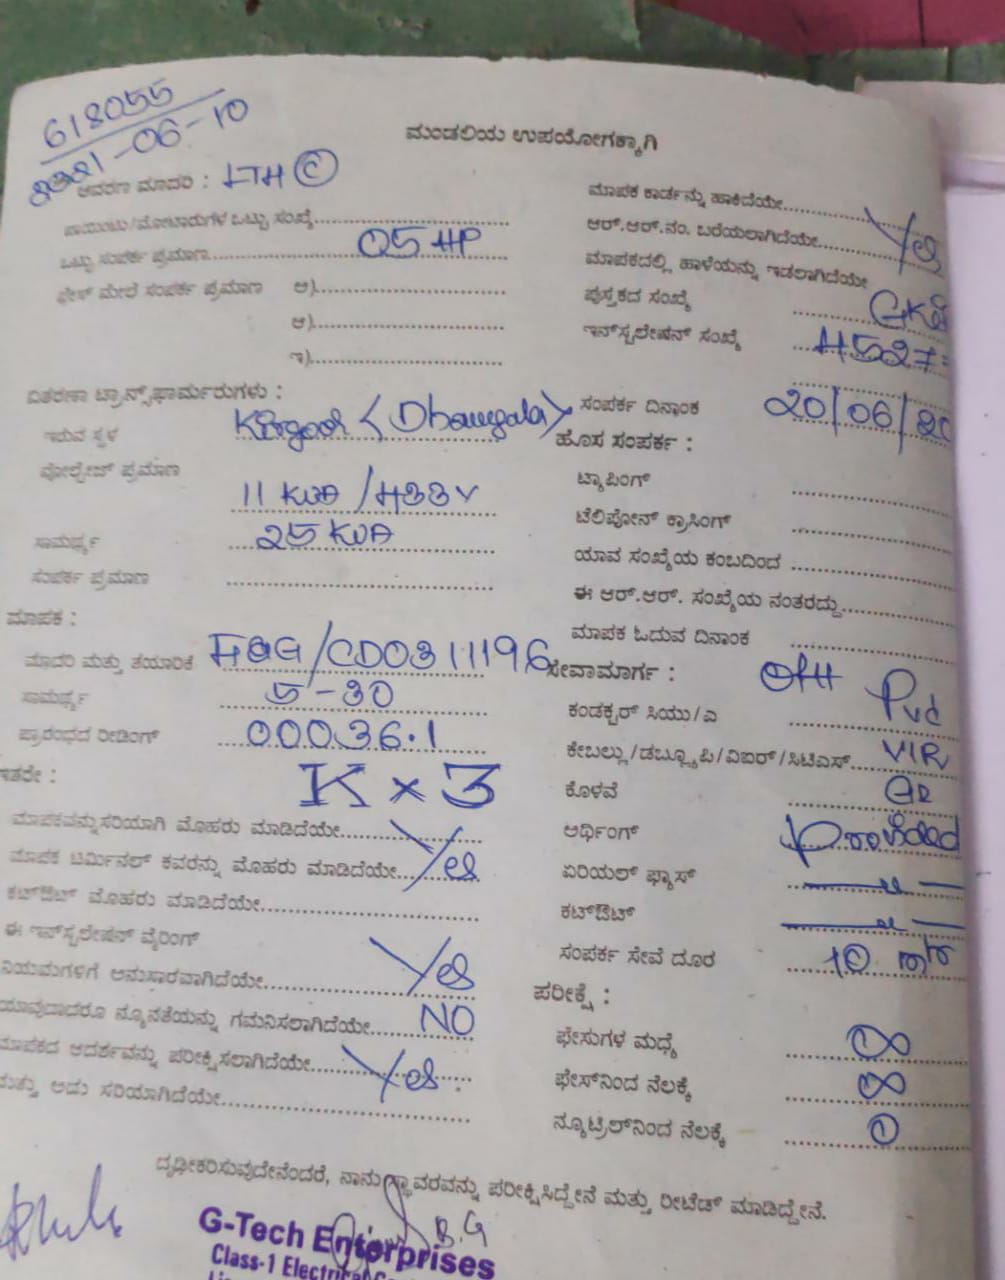 618055
ಮಂಡಲಿಯ ಉಪಯೋಗಕ್ಕಾಗಿ
ಆವರಣ ಮಾದರಿ : LTH ©
ಪಾಯಿಂಟು/ಮೋಟಾರುಗಳ ಒಟ್ಟು ಸಂಖ್ಯೆ
ಒಟ್ಟು ಸಂಪರ್ಕ ಪ್ರಮಾಣ 05 HP
ಫೇಸ್ ಮೇಲೆ ಸಂಪರ್ಕ ಪ್ರಮಾಣ ಅ)
ಆ)
ಇ)
ವಿತರಣಾ ಟ್ರಾನ್ಸ್‌ಫಾರ್ಮರುಗಳು :
ಇರುವ ಸ್ಥಳ
ವೋಲ್ಟೇಜ್ ಪ್ರಮಾಣ
11 KVA / 433 V
ಸಾಮರ್ಥ್ಯ 25 KVA
ಸಂಪರ್ಕ ಪ್ರಮಾಣ
ಮಾಪಕ :
ಮಾದರಿ ಮತ್ತು ತಯಾರಿಕೆ /CD0311196
ಸಾಮರ್ಥ್ಯ 5-30
ಪ್ರಾರಂಭದ ರೀಡಿಂಗ್ 00036.1
ಇತರೇ : K × 3
ಮಾಪಕವನ್ನು ಸರಿಯಾಗಿ ಮೊಹರು ಮಾಡಿದೆಯೇ Yes
ಮಾಪಕ ಟರ್ಮಿನಲ್ ಕವರನ್ನು ಮೊಹರು ಮಾಡಿದೆಯೇ
ಕಟ್‌ಔಟ್ ಮೊಹರು ಮಾಡಿದೆಯೇ
ಈ ಇನ್‌ಸ್ಟಲೇಷನ್ ವೈರಿಂಗ್
ನಿಯಮಗಳಿಗೆ ಅನುಸಾರವಾಗಿದೆಯೇ Yes
ಯಾವುದಾದರೂ ನ್ಯೂನತೆಯನ್ನು ಗಮನಿಸಲಾಗಿದೆಯೇ NO
ಮಾಪಕದ ಆದರ್ಶವನ್ನು ಪರೀಕ್ಷಿಸಲಾಗಿದೆಯೇ Yes
ಮತ್ತು ಅದು ಸರಿಯಾಗಿದೆಯೇ
ಮಾಪಕ ಕಾರ್ಡನ್ನು ಹಾಕಿದೆಯೇ
ಆರ್.ಆರ್.ನಂ. ಬರೆಯಲಾಗಿದೆಯೇ Yes
ಮಾಪಕದಲ್ಲಿ ಹಾಳೆಯನ್ನು ಇಡಲಾಗಿದೆಯೇ
ಪುಸ್ತಕದ ಸಂಖ್ಯೆ
ಇನ್‌ಸ್ಟಲೇಷನ್ ಸಂಖ್ಯೆ
ಸಂಪರ್ಕ ದಿನಾಂಕ 20/06/20
ಹೊಸ ಸಂಪರ್ಕ :
ಟ್ಯಾಪಿಂಗ್
ಟೆಲಿಪೋನ್ ಕ್ರಾಸಿಂಗ್
ಯಾವ ಸಂಖ್ಯೆಯ ಕಂಬದಿಂದ
ಈ ಆರ್.ಆರ್. ಸಂಖ್ಯೆಯ ನಂತರದ್ದು
ಮಾಪಕ ಓದುವ ದಿನಾಂಕ
ಸೇವಾಮಾರ್ಗ : OH
ಕಂಡಕ್ಟರ್ ಸಿಯು/ಎ Pvc
ಕೇಬಲ್ಲು/ಡಬ್ಲ್ಯೂಪಿ/ವಿಐಆರ್/ಸಿಟಿಎಸ್ VIR
ಕೊಳವೆ
ಅರ್ಥಿಂಗ್ Provided
ಏರಿಯಲ್ ಫ್ಯೂಸ್
ಕಟ್‌ಔಟ್
ಸಂಪರ್ಕ ಸೇವೆ ದೂರ 10 mtr
ಪರೀಕ್ಷೆ :
ಫೇಸುಗಳ ಮಧ್ಯೆ ∞
ಫೇಸ್‌ನಿಂದ ನೆಲಕ್ಕೆ ∞
ನ್ಯೂಟ್ರಲ್‌ನಿಂದ ನೆಲಕ್ಕೆ
ದೃಢೀಕರಿಸುವುದೇನೆಂದರೆ, ನಾನು ಸ್ಥಾವರವನ್ನು ಪರೀಕ್ಷಿಸಿದ್ದೇನೆ ಮತ್ತು ರೀಟೆಡ್ ಮಾಡಿದ್ದೇನೆ.
B.G
G-Tech Enterprises
Class-1 Electrical